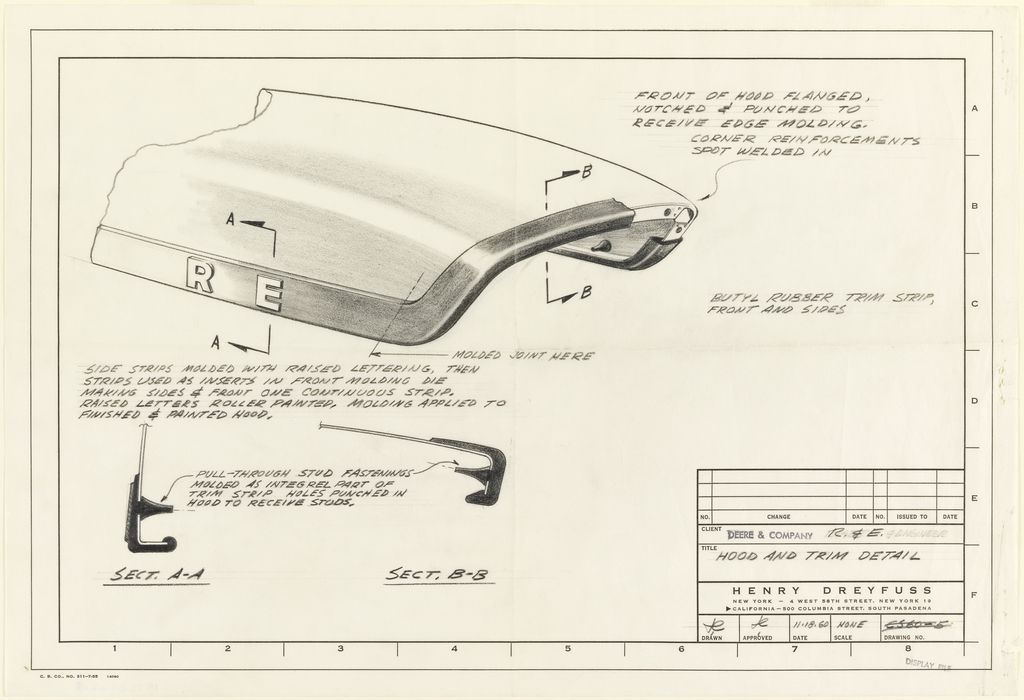 FRONT OF HOOD FLANGED,
NOTCHED & PUNCHED TO
RECEIVE EDGE MOLDING.
CORNER REINFORCEMENTS
SPOT WELDED IN
A
B
C
D
E
F
B
B
A
A
R E
BUTYL RUBBER TRIM STRIP,
FRONT AND SIDES
MOLDED JOINT HERE
SIDE STRIPS MOLDED WITH RAISED LETTERING, THEN
STRIPS USED AS INSERTS IN FRONT MOLDING DIE
MAKING SIDES & FRONT ONE CONTINUOUS STRIP.
RAISED LETTERS ROLLER PAINTED, MOLDING APPLIED TO
FINISHED & PAINTED HOOD.
PULL-THROUGH STUD FASTENINGS
MOLDED AS INTEGREL PART OF
TRIM STRIP HOLES PUNCHED IN
HOOD TO RECEIVE STUDS.
SECT. A-A
SECT. B-B
NO. CHANGE DATE NO. ISSUED TO DATE
CLIENT DEERE & COMPANY R. & E.
TITLE HOOD AND TRIM DETAIL
HENRY DREYFUSS
NEW YORK — 4 WEST 58TH STREET, NEW YORK 19
▶CALIFORNIA—500 COLUMBIA STREET, SOUTH PASADENA
11-18-60 NONE
DRAWN APPROVED DATE SCALE DRAWING NO.
1 2 3 4 5 6 7 8
DISPLAY FILE
C. B. CO., NO. 211-7-55